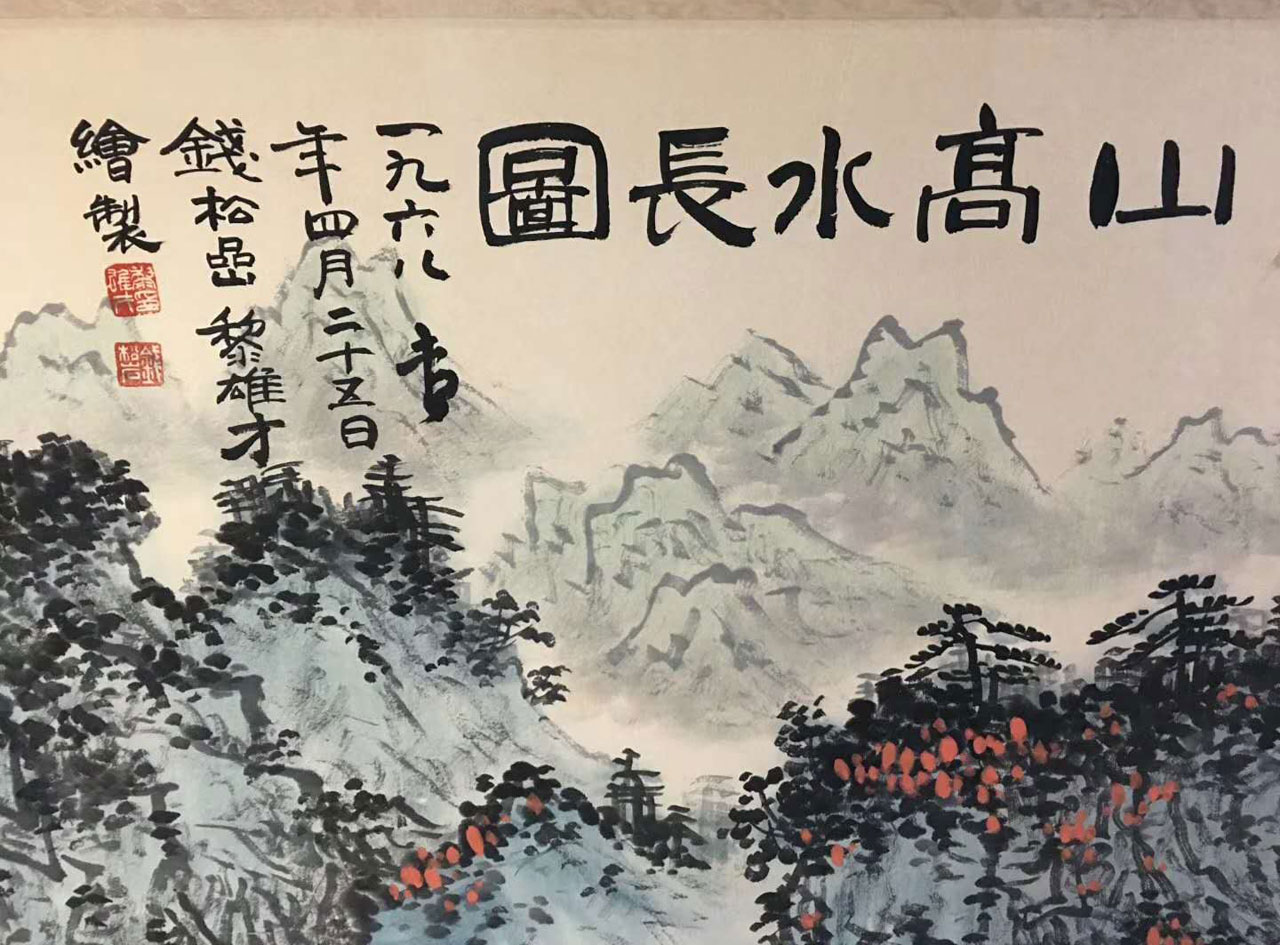 山髙水長圖
一九六八
年四月二十五日
錢松嵒 黎雄才
繪製